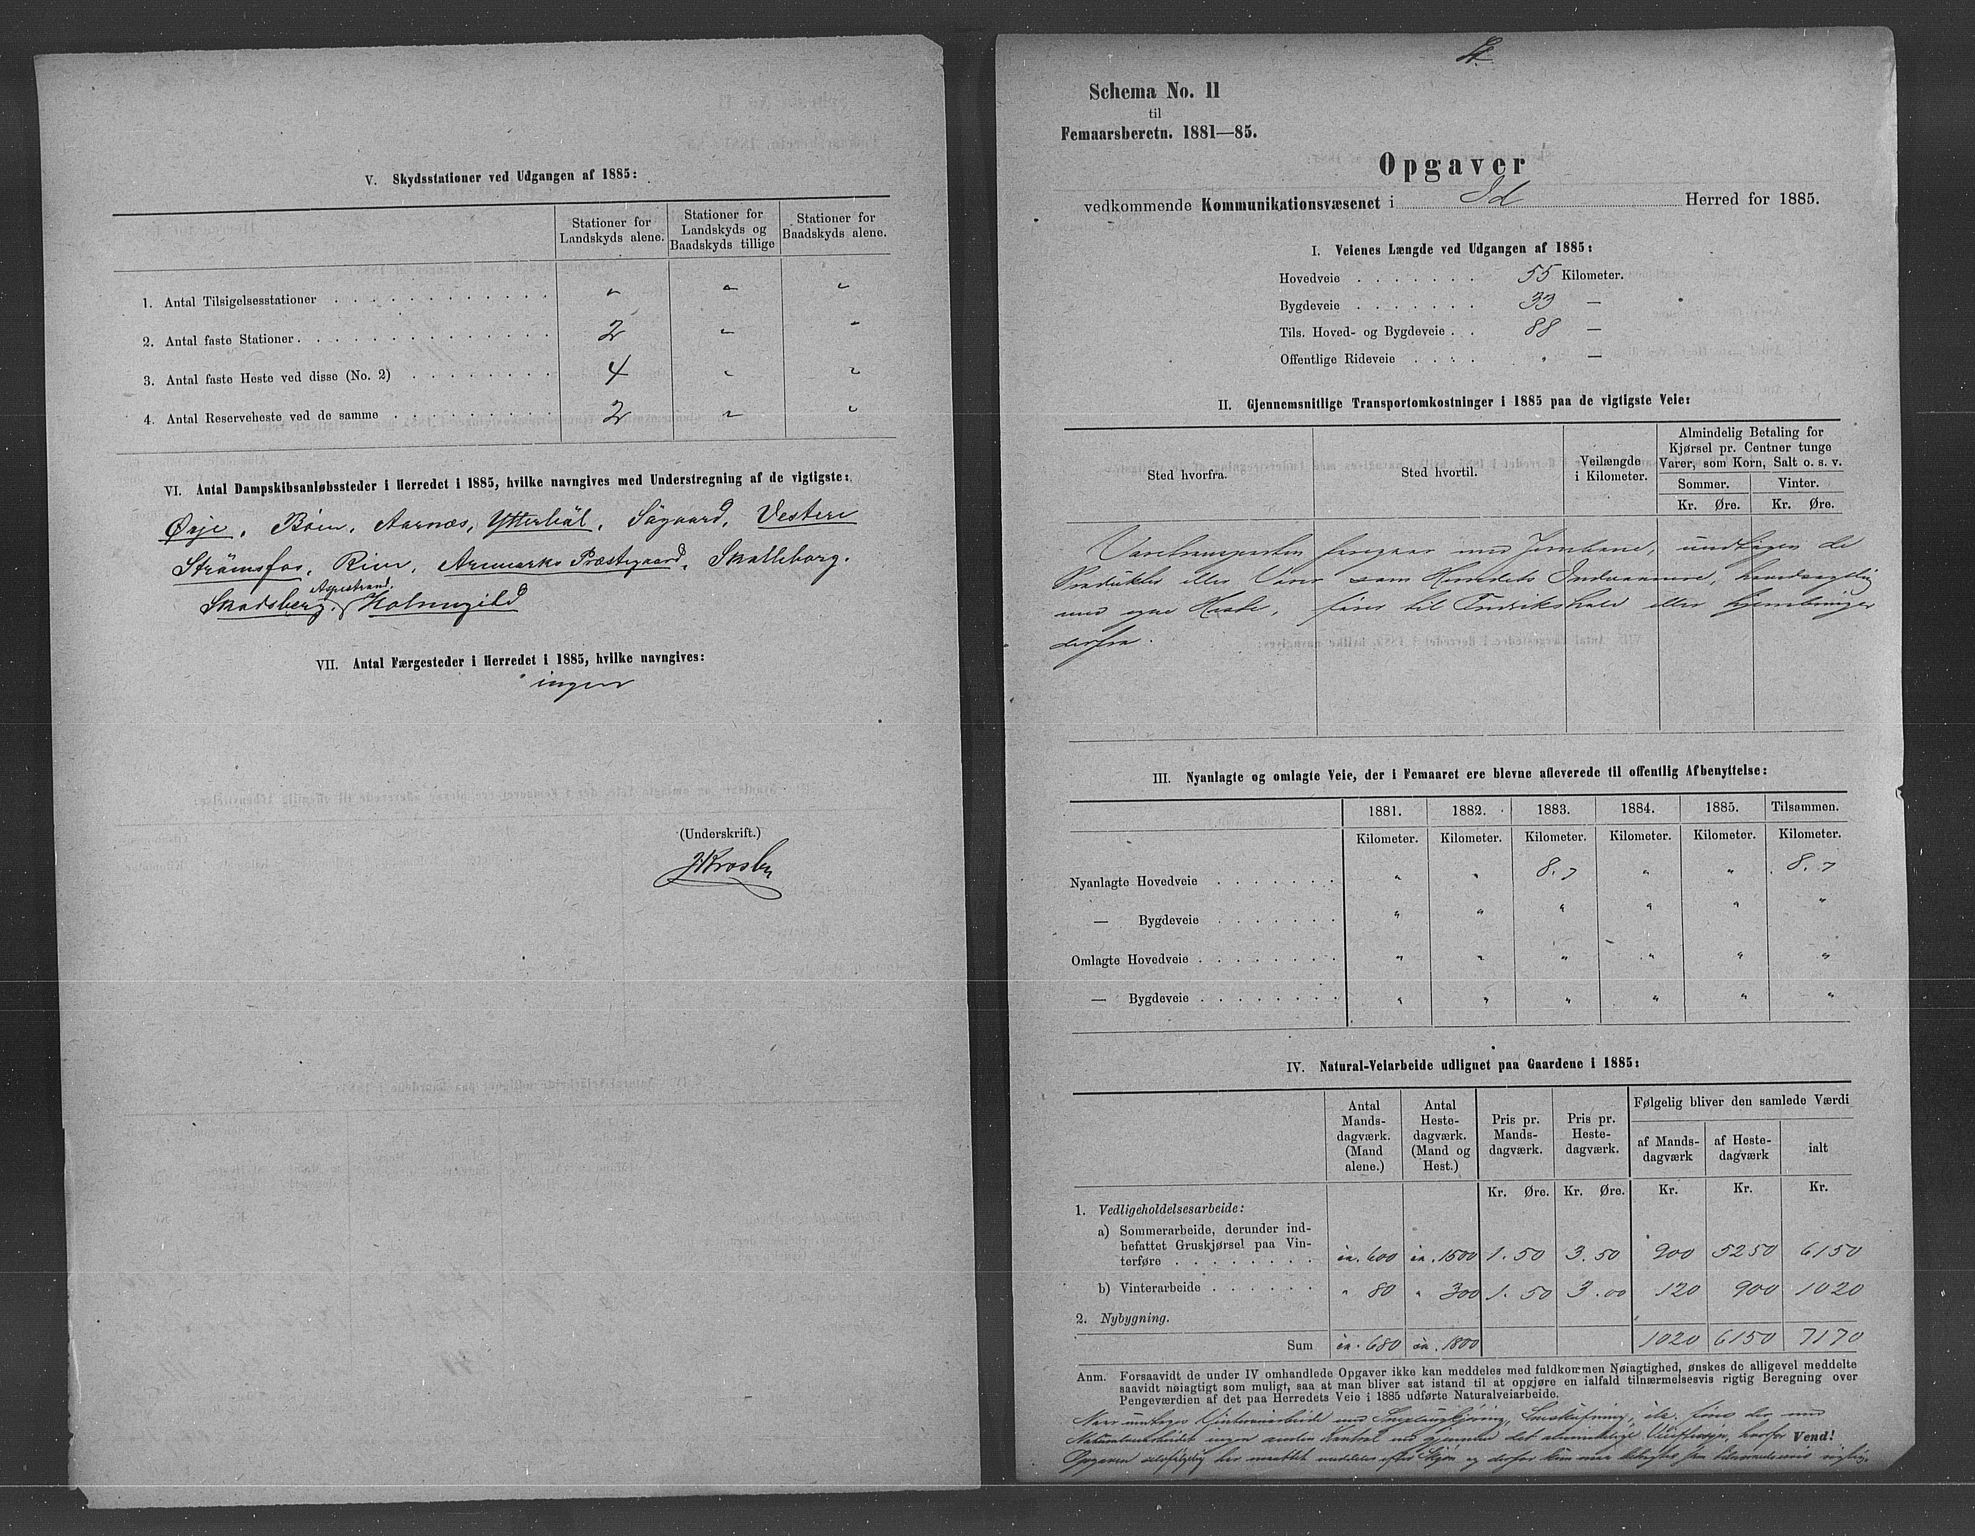 V. Skydsstationer ved Udgangen af 1885:
Stationer for Landskyds alene. Stationer for Landskyds og Baadskyds tillige Stationer for Baadskyds alene.
1. Antal Tilsigelsesstationer „ „ „
2. Antal faste Stationer 2 „ „
3. Antal faste Heste ved disse (No. 2) 4 „ „
4. Antal Reserveheste ved de samme 2 „ „
VI. Antal Dampskibsanløbssteder i Herredet i 1885, hvilke navngives med Understregning af de vigtigste:
Ørje, Böen, Aarnæs, Ytterböl, Sögaard, Vestere
Strømsfos, Rive, Aremarks Præstegaard, Skolleborg.
Aspestrand.
Skodsberg, Holmegild
VII. Antal Færgesteder i Herredet i 1885, hvilke navngives:
ingen
(Underskrift.)
Schema No. 11
til
Femaarsberetn. 1881—85.
Opgaver
vedkommende Kommunikationsvæsenet i Id Herred for 1885.
I. Veienes Længde ved Udgangen af 1885:
Hovedveie 55 Kilometer.
Bygdeveie 33 —
Tils. Hoved- og Bygdeveie 88 —
Offentlige Rideveie „ —
II. Gjennemsnitlige Transportomkostninger i 1885 paa de vigtigste Veie:
Sted hvorfra. Sted hvortil. Veilængde i Kilometer. Almindelig Betaling for Kjørsel pr. Centner tunge Varer, som Korn, Salt o. s. v.
Sommer. Vinter.
Kr. Øre. Kr. Øre.
Varetransporten foregaar med Jernbane, undtagen de
Produkter eller Varer som Herredets Indvaanere, hovedsagelig
med egne Heste, fører til Fredrikshald eller hjembringer
derfra.
III. Nyanlagte og omlagte Veie, der i Femaaret ere blevne afleverede til offentlig Afbenyttelse:
1881. 1882. 1883. 1884. 1885. Tilsammen.
Kilometer. Kilometer. Kilometer. Kilometer. Kilometer. Kilometer.
Nyanlagte Hovedveie „ „ 8.7 „ „ 8.7
— Bygdeveie „ „ „ „ „ „
Omlagte Hovedveie „ „ „ „ „ „
— Bygdeveie „ „ „ „ „ „
IV. Natural-Veiarbeide udlignet paa Gaardene i 1885:
Antal Mands-dagværk. (Mand alene.) Antal Heste-dagværk. (Mand og Hest.) Pris pr. Mands-dagværk. Pris pr. Heste-dagværk. Følgelig bliver den samlede Værdi
af Mands-dagværk af Heste-dagværk ialt
Kr. Øre. Kr. Øre. Kr. Kr. Kr.
1. Vedligeholdelsesarbeide:
a) Sommerarbeide, derunder ind-
befattet Gruskjørsel paa Vin-
terføre ca. 600 ca. 1500 1.50 3.50 900 5250 6150
b) Vinterarbeide „ 80 „ 300 1.50 3.00 120 900 1020
2. Nybygning.
Sum ca. 680 ca. 1800 1020 6150 7170
Anm. Forsaavidt de under IV omhandlede Opgaver ikke kan meddeles med fuldkommen Nøiagtighed, ønskes de alligevel meddelte
saavidt nøiagtigt som muligt, saa at man bliver sat istand til at opgjøre en ialfald tilnærmelsesvis rigtig Beregning over
Pengeværdien af det paa Herredets Veie i 1885 udførte Naturalveiarbeide.
Naar undtages Vinterarbeide med Sneplougkjøring, Sneskufning, etc. føres der med
Naturalarbeidet ingen anden Kontrol end gjennem det almindelige Veiopsyn, hvorfor Vend!
Opgaven selvfølgelig har maattet meddeles efter Skjøn og derfor kun maa betragtes som tilnærmelsesvis rigtig.